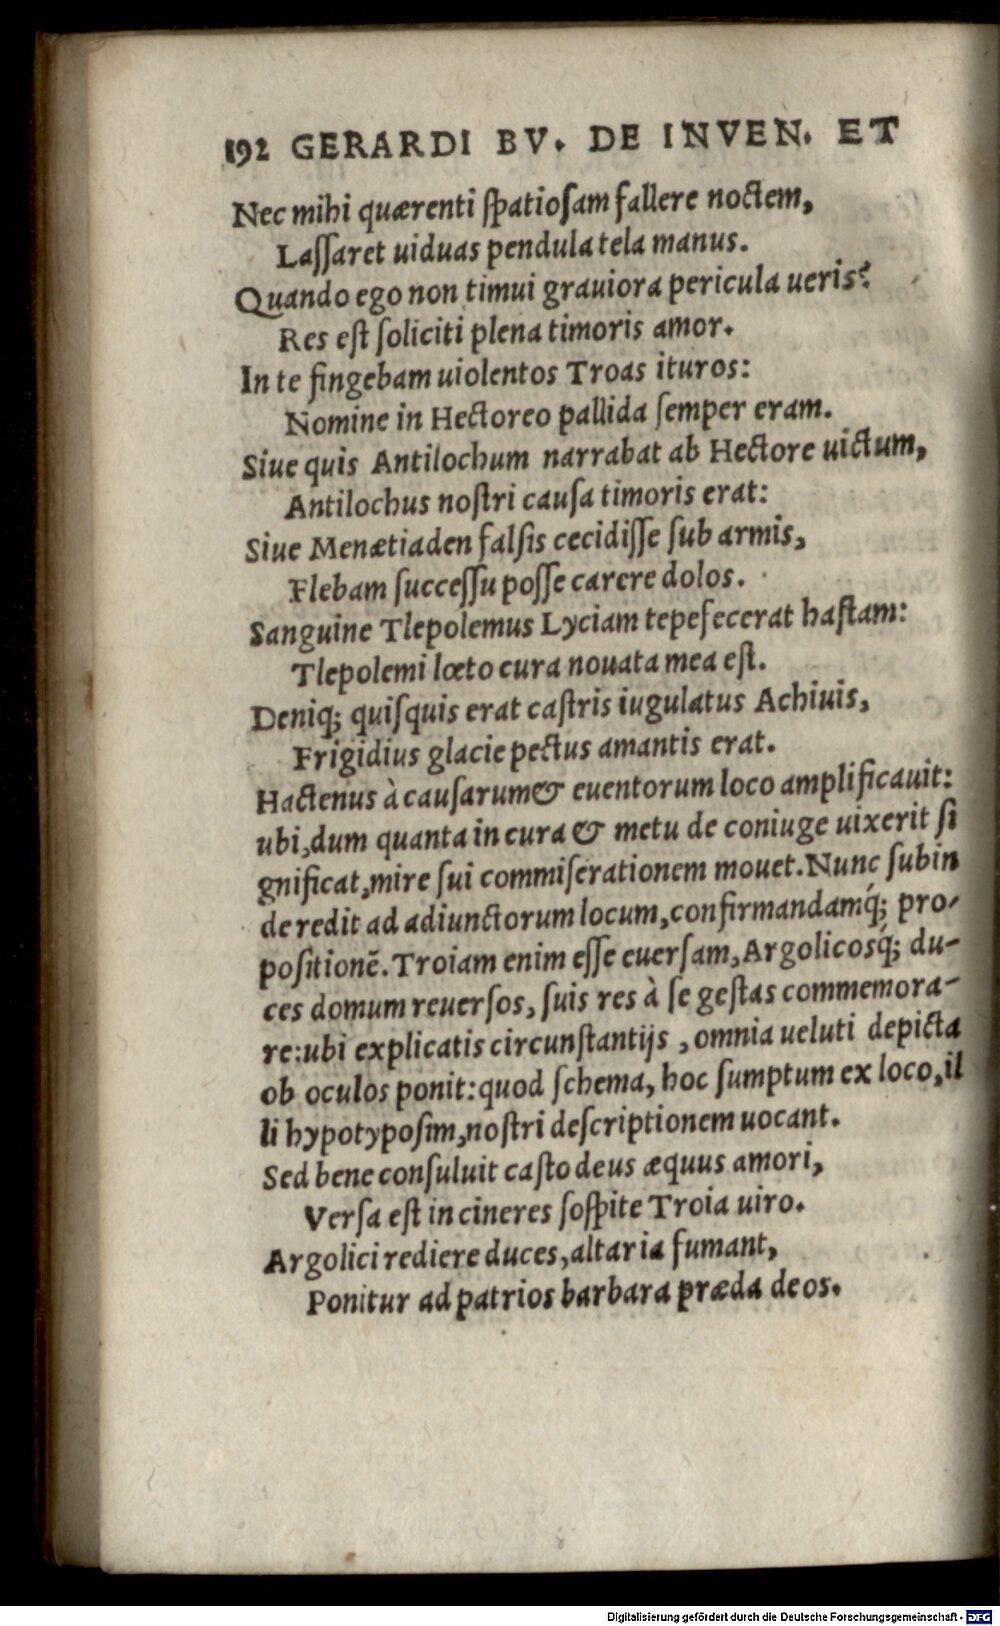 192 GERARDI BV. DE INVEN. ET
Nec mihi quærenti ſpatioſam fallere noctem,
Laſſaret uiduas pendula tela manus.
Quando ego non timui grauiora pericula ueris?
Res eſt ſoliciti plena timoris amor.
In te fingebam uiolentos Troas ituros:
Nomine in Hectoreo pallida ſemper eram.
Siue quis Antilochum narrabat ab Hectore uictum,
Antilochus noſtri cauſa timoris erat:
Siue Menætiaden falſis cecidiſſe ſub armis,
Flebam ſucceſſu poſſe carere dolos.
Sanguine Tlepolemus Lyciam tepefecerat haſtam:
Tlepolemi lœto cura nouata mea eſt.
Deniq; quiſquis erat caſtris iugulatus Achiuis,
Frigidius glacie pectus amantis erat.
Hactenus à cauſarum & euentorum loco amplificauit:
ubi, dum quanta in cura & metu de coniuge uixerit ſi
gnificat, mire ſui commiſerationem mouet. Nunc ſubin
de redit ad adiunctorum locum, confirmandamq́; pro-
poſitionē. Troiam enim eſſe euerſam, Argolicosq́; du-
ces domum reuerſos, ſuis res à ſe geſtas commemora-
re: ubi explicatis circunſtantijs, omnia ueluti depicta
ob oculos ponit: quod ſchema, hoc ſumptum ex loco, il
li hypotypoſim, noſtri deſcriptionem uocant.
Sed bene conſuluit caſto deus æquus amori,
Verſa eſt in cineres ſoſpite Troia uiro.
Argolici rediere duces, altaria fumant,
Ponitur ad patrios barbara præda deos.
Digitalisierung gefördert durch die Deutsche Forschungsgemeinschaft - DFG